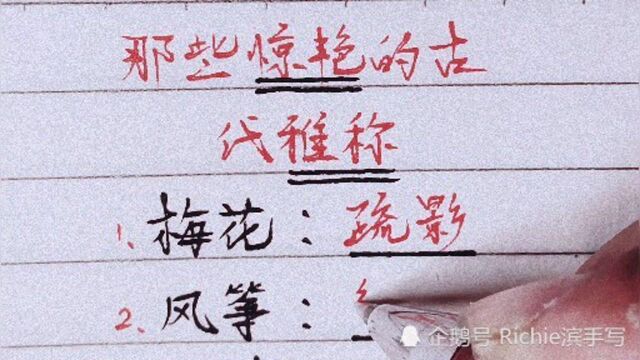 那些惊艳的古
代雅称
1、梅花：疏影
2、风筝：
企鹅号 Richie滨手写